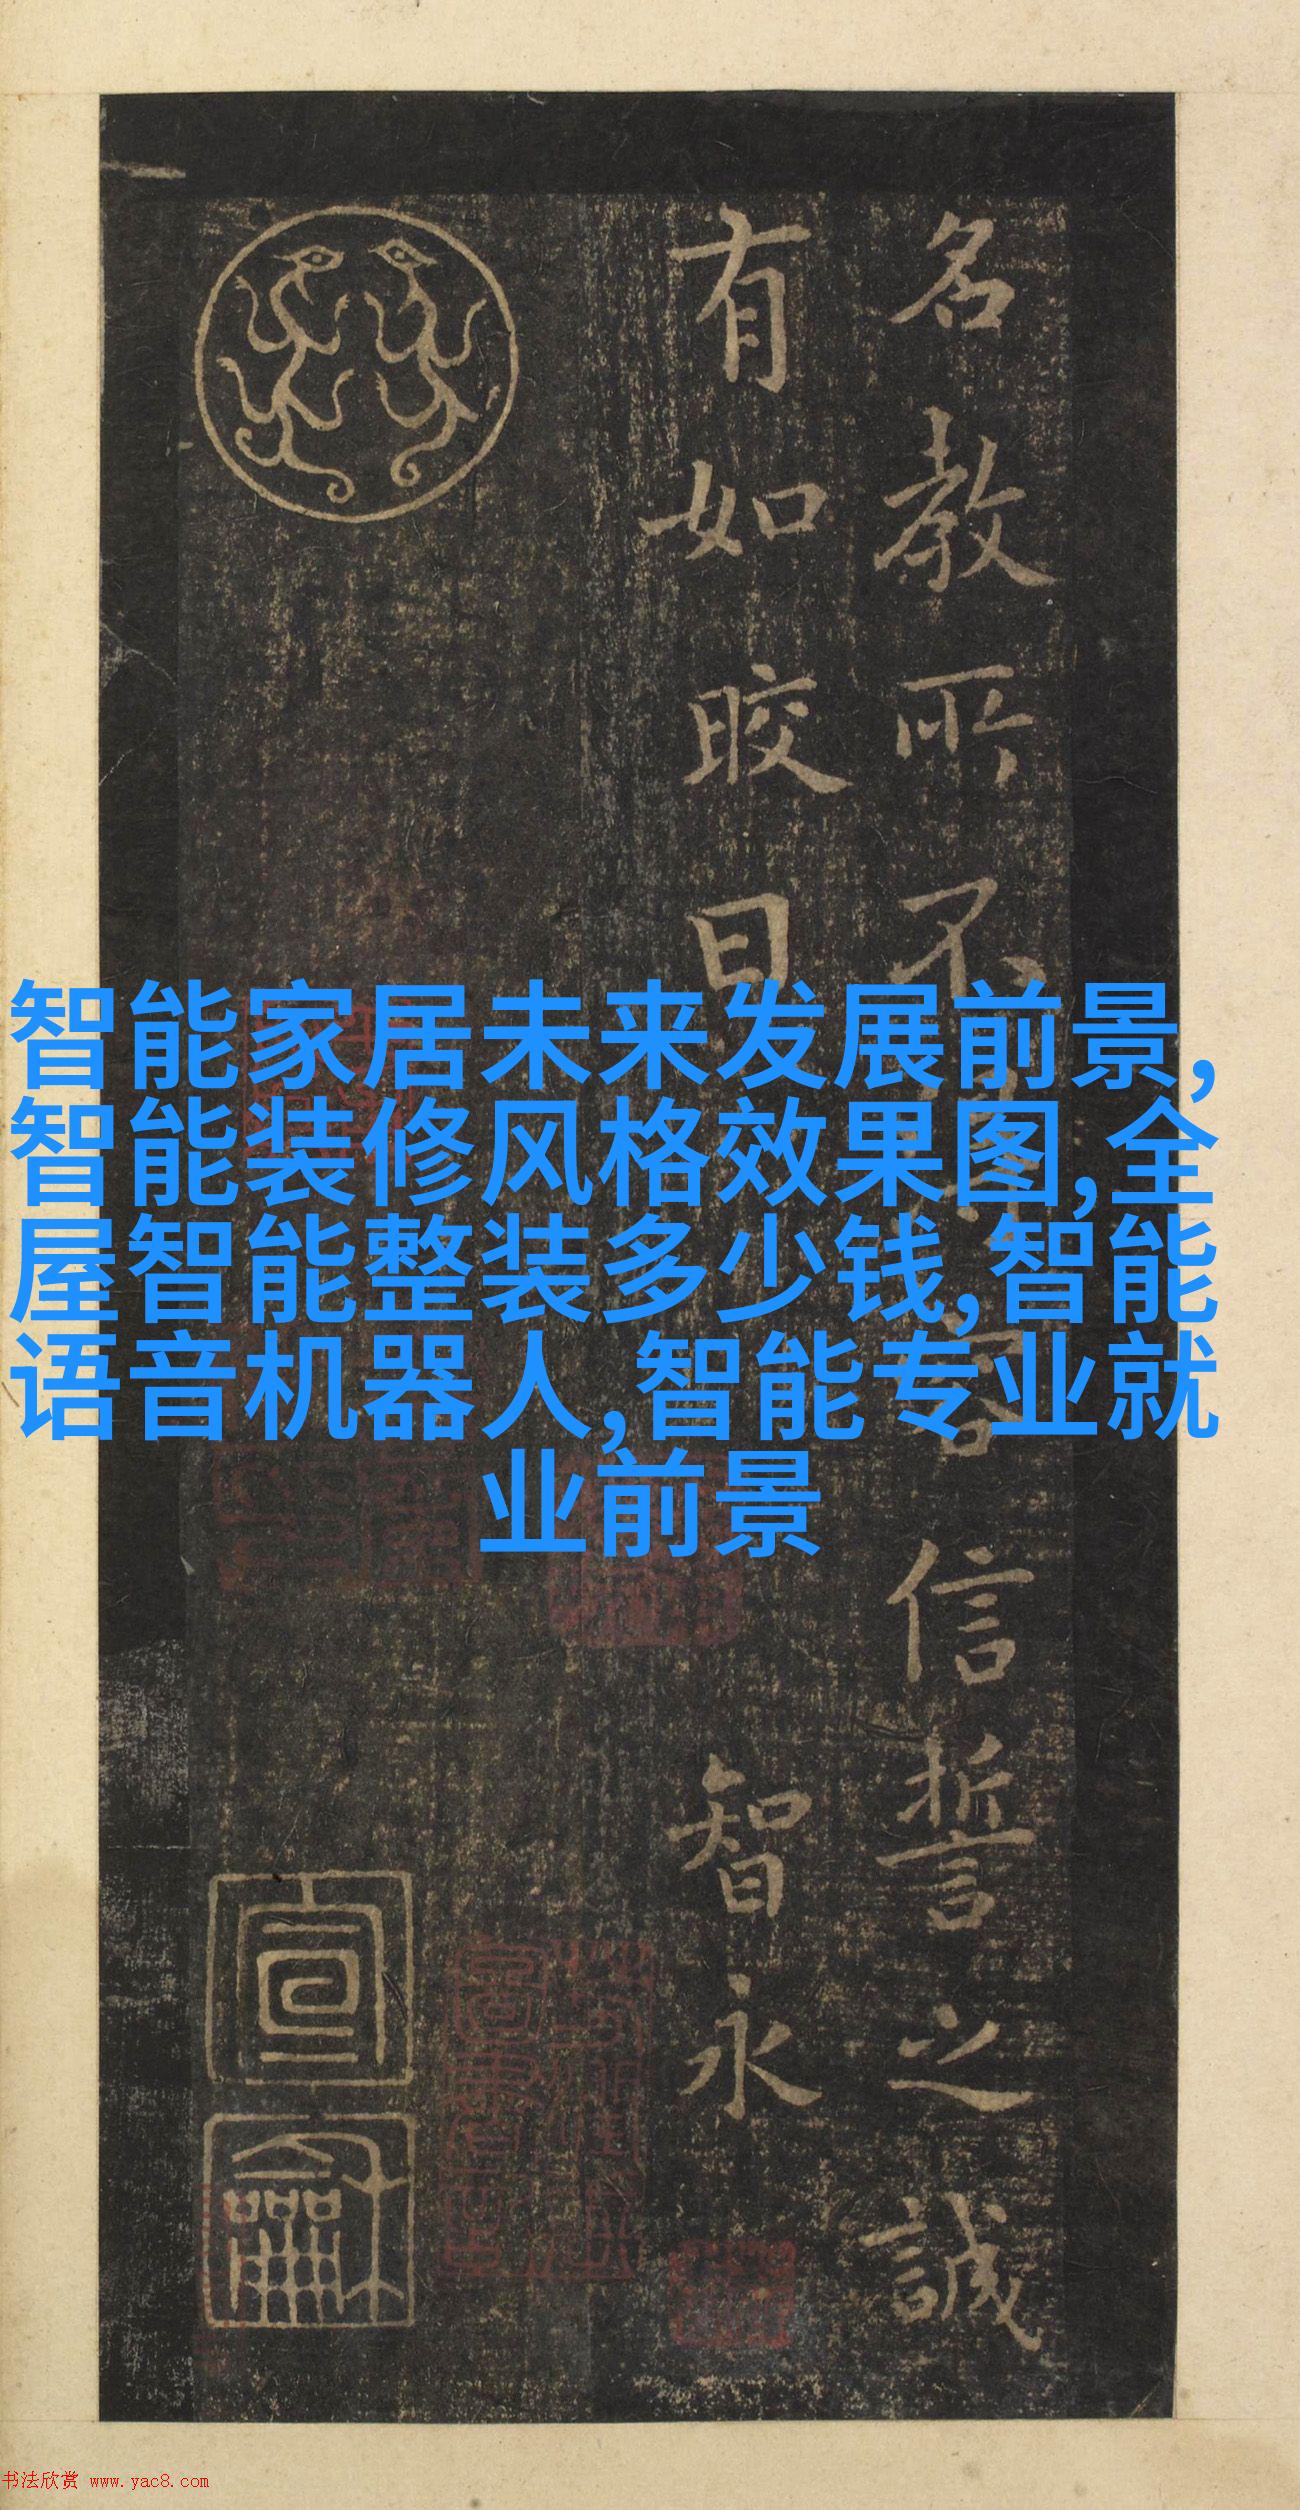 名教所不
信誓之誠
有如晈日
智永
宣
龢
智能家居未来发展前景,
智能装修风格效果图,全
屋智能整装多少钱,智能
语音机器人,智能专业就
业前景
书法欣赏 www.yac8.com